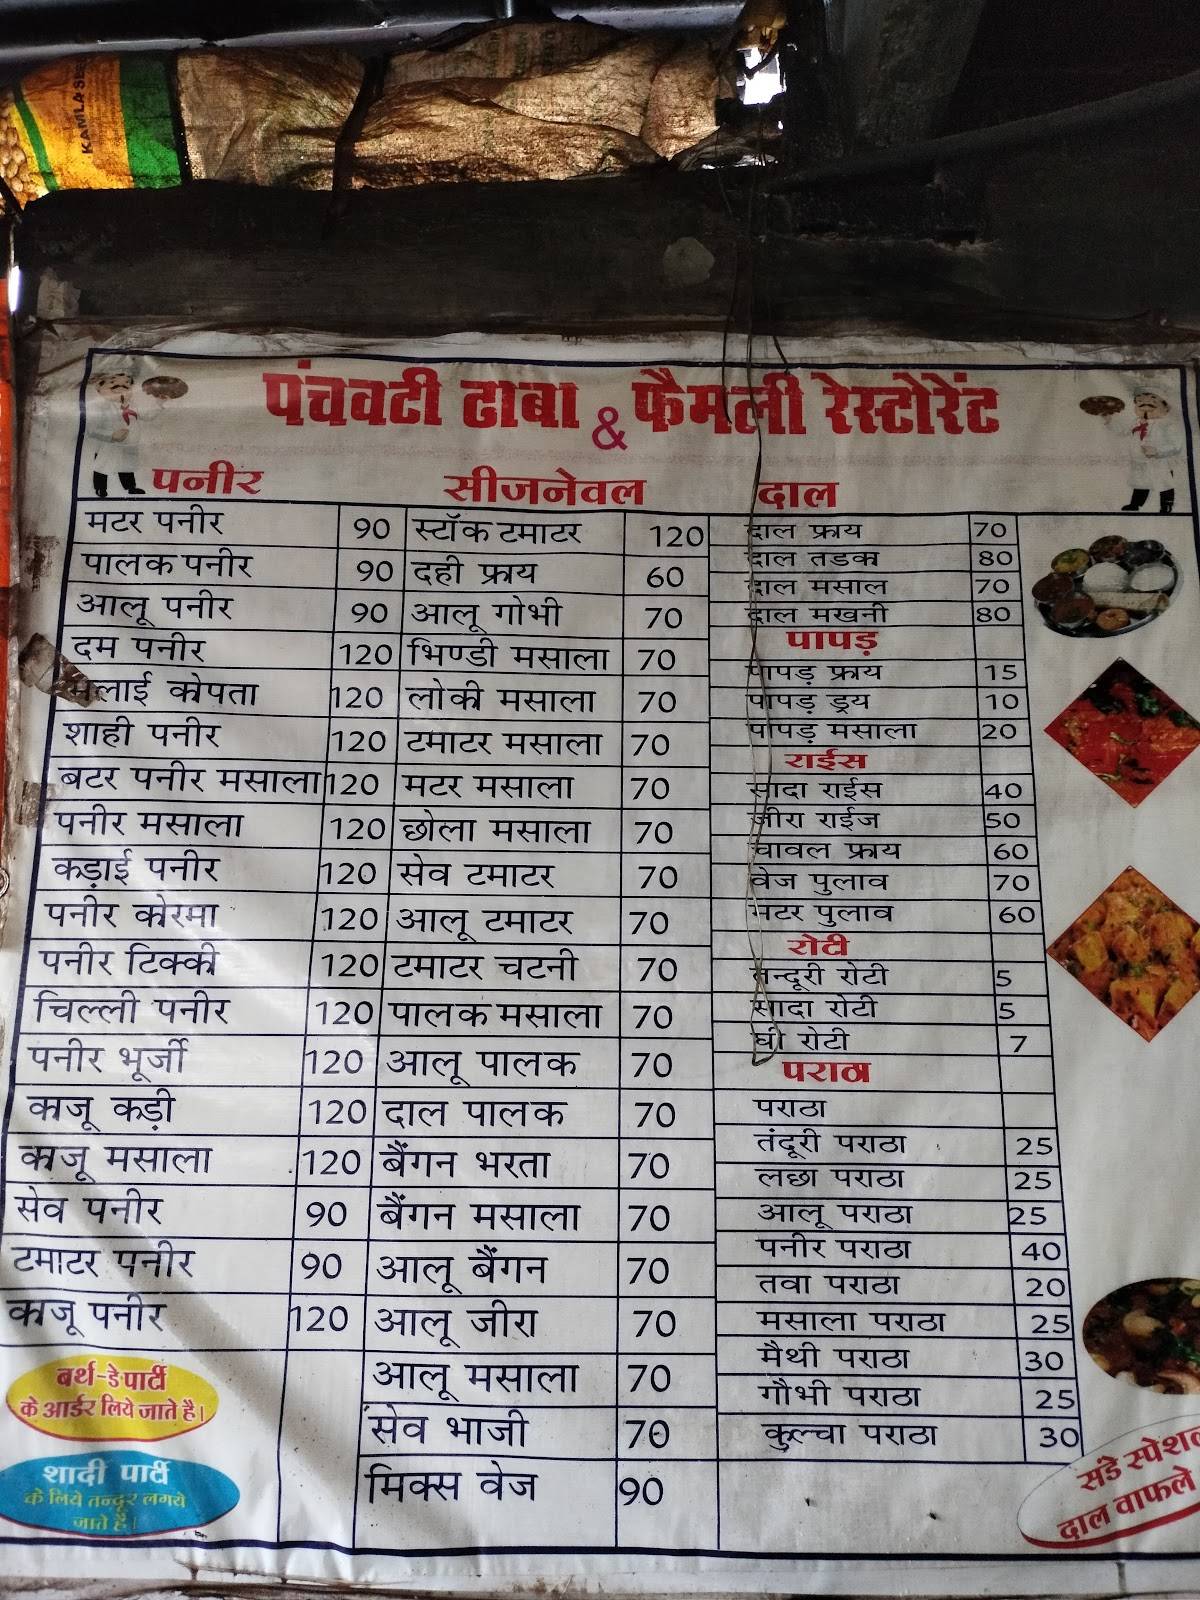 KAMLA SE
पंचवटी ढाबा & फैमली रेस्टोरेंट
पनीर
मटर पनीर 90
पालक पनीर 90
आलू पनीर 90
दम पनीर 120
मलाई कोपता 120
शाही पनीर 120
बटर पनीर मसाला 120
पनीर मसाला 120
कड़ाई पनीर 120
पनीर कोरमा 120
पनीर टिक्की 120
चिल्ली पनीर 120
पनीर भूर्जी 120
काजू कड़ी 120
काजू मसाला 120
सेव पनीर 90
टमाटर पनीर 90
काजू पनीर 120
बर्थ-डे पार्टी
के आर्डर लिये जाते है।
शादी पार्टी
के लिये तन्दूर लगाये
जाते है।
सीजनेवल
स्टॉक टमाटर 120
दही फ्राय 60
आलू गोभी 70
भिण्डी मसाला 70
लोकी मसाला 70
टमाटर मसाला 70
मटर मसाला 70
छोला मसाला 70
सेव टमाटर 70
आलू टमाटर 70
टमाटर चटनी 70
पालक मसाला 70
आलू पालक 70
दाल पालक 70
बैंगन भरता 70
बैंगन मसाला 70
आलू बैंगन 70
आलू जीरा 70
आलू मसाला 70
सेव भाजी 70
मिक्स वेज 90
दाल
दाल फ्राय 70
दाल तडका 80
दाल मसाल 70
दाल मखनी 80
पापड़
पापड़ फ्राय 15
पापड़ ड्रय 10
पापड़ मसाला 20
राईस
सादा राईस 40
जीरा राईज 50
चावल फ्राय 60
वेज पुलाव 70
मटर पुलाव 60
रोटी
तन्दूरी रोटी 5
सादा रोटी 5
घी रोटी 7
पराठा
पराठा
तंदूरी पराठा 25
लछा पराठा 25
आलू पराठा 25
पनीर पराठा 40
तवा पराठा 20
मसाला पराठा 25
मैथी पराठा 30
गौभी पराठा 25
कुल्चा पराठा 30
संडे स्पेशल
दाल वाफले